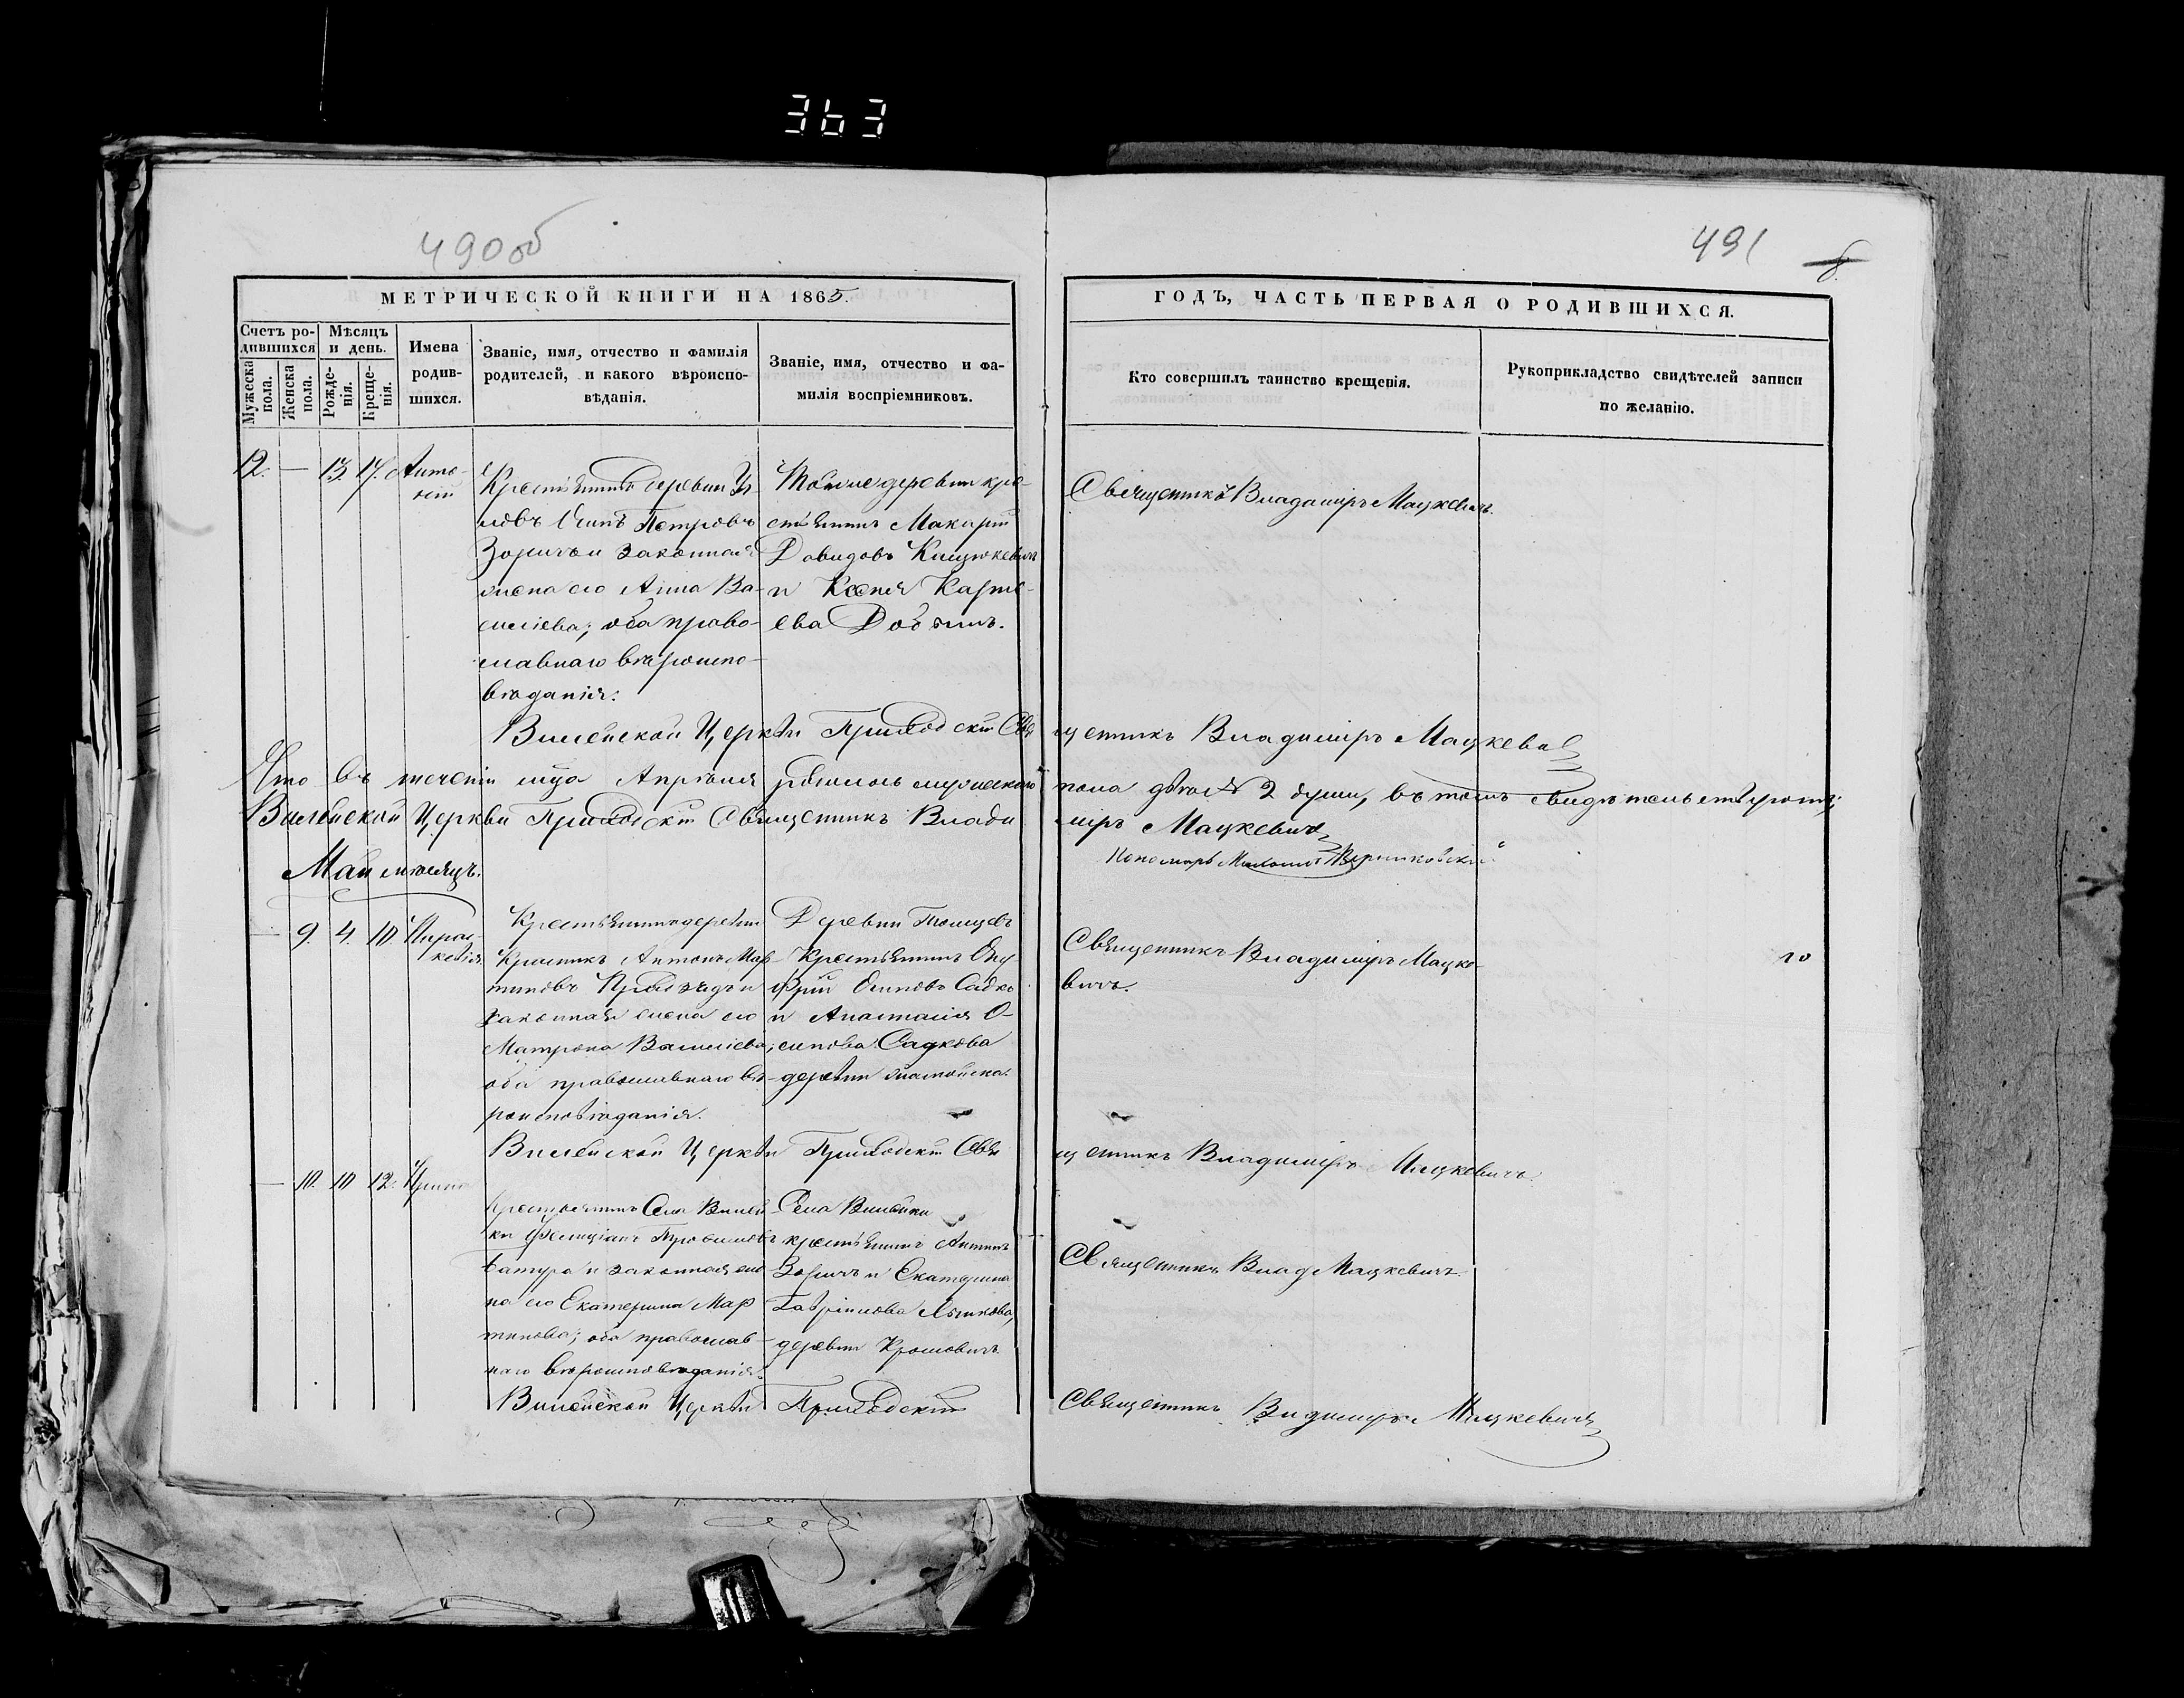 363
490об
491
8.
МЕТРИЧЕСКОЙ КНИГИ НА 1865.
Счетъ ро-
дившихся
Мѣсяцъ
и день.
Мужеска
пола.
Женска
пола.
Рожде-
нія.
Креще-
нія.
Имена
родив-
шихся.
Званіе, имя, отчество и фамилія
родителей, и какого вѣроиспо-
вѣданія.
Званіе, имя, отчество и фа-
милія воспріемниковъ.
ГОДЪ, ЧАСТЬ ПЕРВАЯ О РОДИВШИХСЯ.
Кто совершилъ таинство крещенія.
Рукоприкладство свидѣтелей записи
по желанію.
12. — 13. 17. Анто-
ній
Крестьянинъ деревни
Осипъ Петровъ
Зоричъ и законная
жена его Анна Ва-
силіева; оба право-
славнаго вѣроиспо-
вѣданія.
Тойже деревни кре-
стьянинъ Макарій
Давидовъ
и Ксенія
ева
Священникъ Владиміръ Мацкевичъ.
Вилейской Церкви Приходскій Священникъ Владиміръ Мацкевичъ
Что въ теченіи мца Апрѣля родилось мужескаго пола 2 души, въ томъ свидѣтельствуютъ:
Вилейской Церкви Приходскій Священникъ Владиміръ Мацкевичъ
Пономарь
Май мѣсяцъ.
— 9. 4. 10 Парас-
кевія
Крестьянинъ деревни
Антонъ Мар-
тиновъ и
законная жена его
Матрона Василіева;
оба православнаго вѣ-
роисповѣданія.
Деревни
Крестьянинъ Ону-
фрій Осиповъ Садко
и Анастасія О-
сипова Садкова
деревни
Священникъ Владиміръ Мацке-
вичъ.
10
Вилейской Церкви Приходскій Священникъ Владиміръ Мацкевичъ.
— 10. 10 12. Ирина
Крестьянинъ Села Вилей-
ки Фелиціанъ
и законная же-
на его Екатерина Мар-
тинова; оба православ-
наго вѣроисповѣданія.
Села Вилейки
крестьянинъ Антонъ
Зоричъ и Екатерина
Гавріилова
деревни
Священникъ Влад Мацкевичъ.
Вилейской Церкви Приходскій Священникъ Владиміръ Мацкевичъ